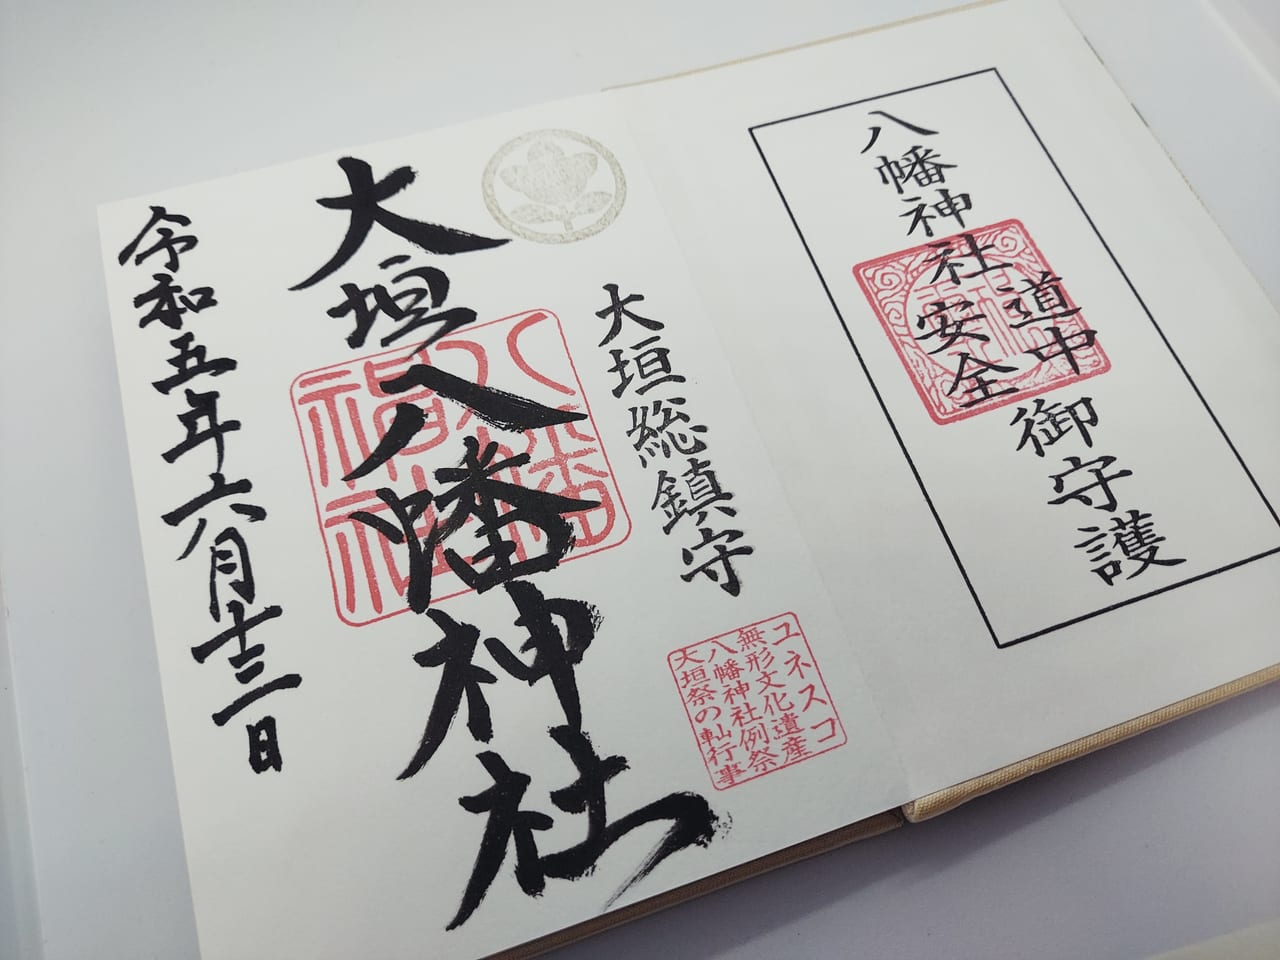 八幡神社
道中
安全
御守護
大垣総鎮守
大垣八幡神社
令和五年六月十三日
八幡
神社
ユネスコ
無形文化遺産
八幡神社例祭
大垣祭の軕行事